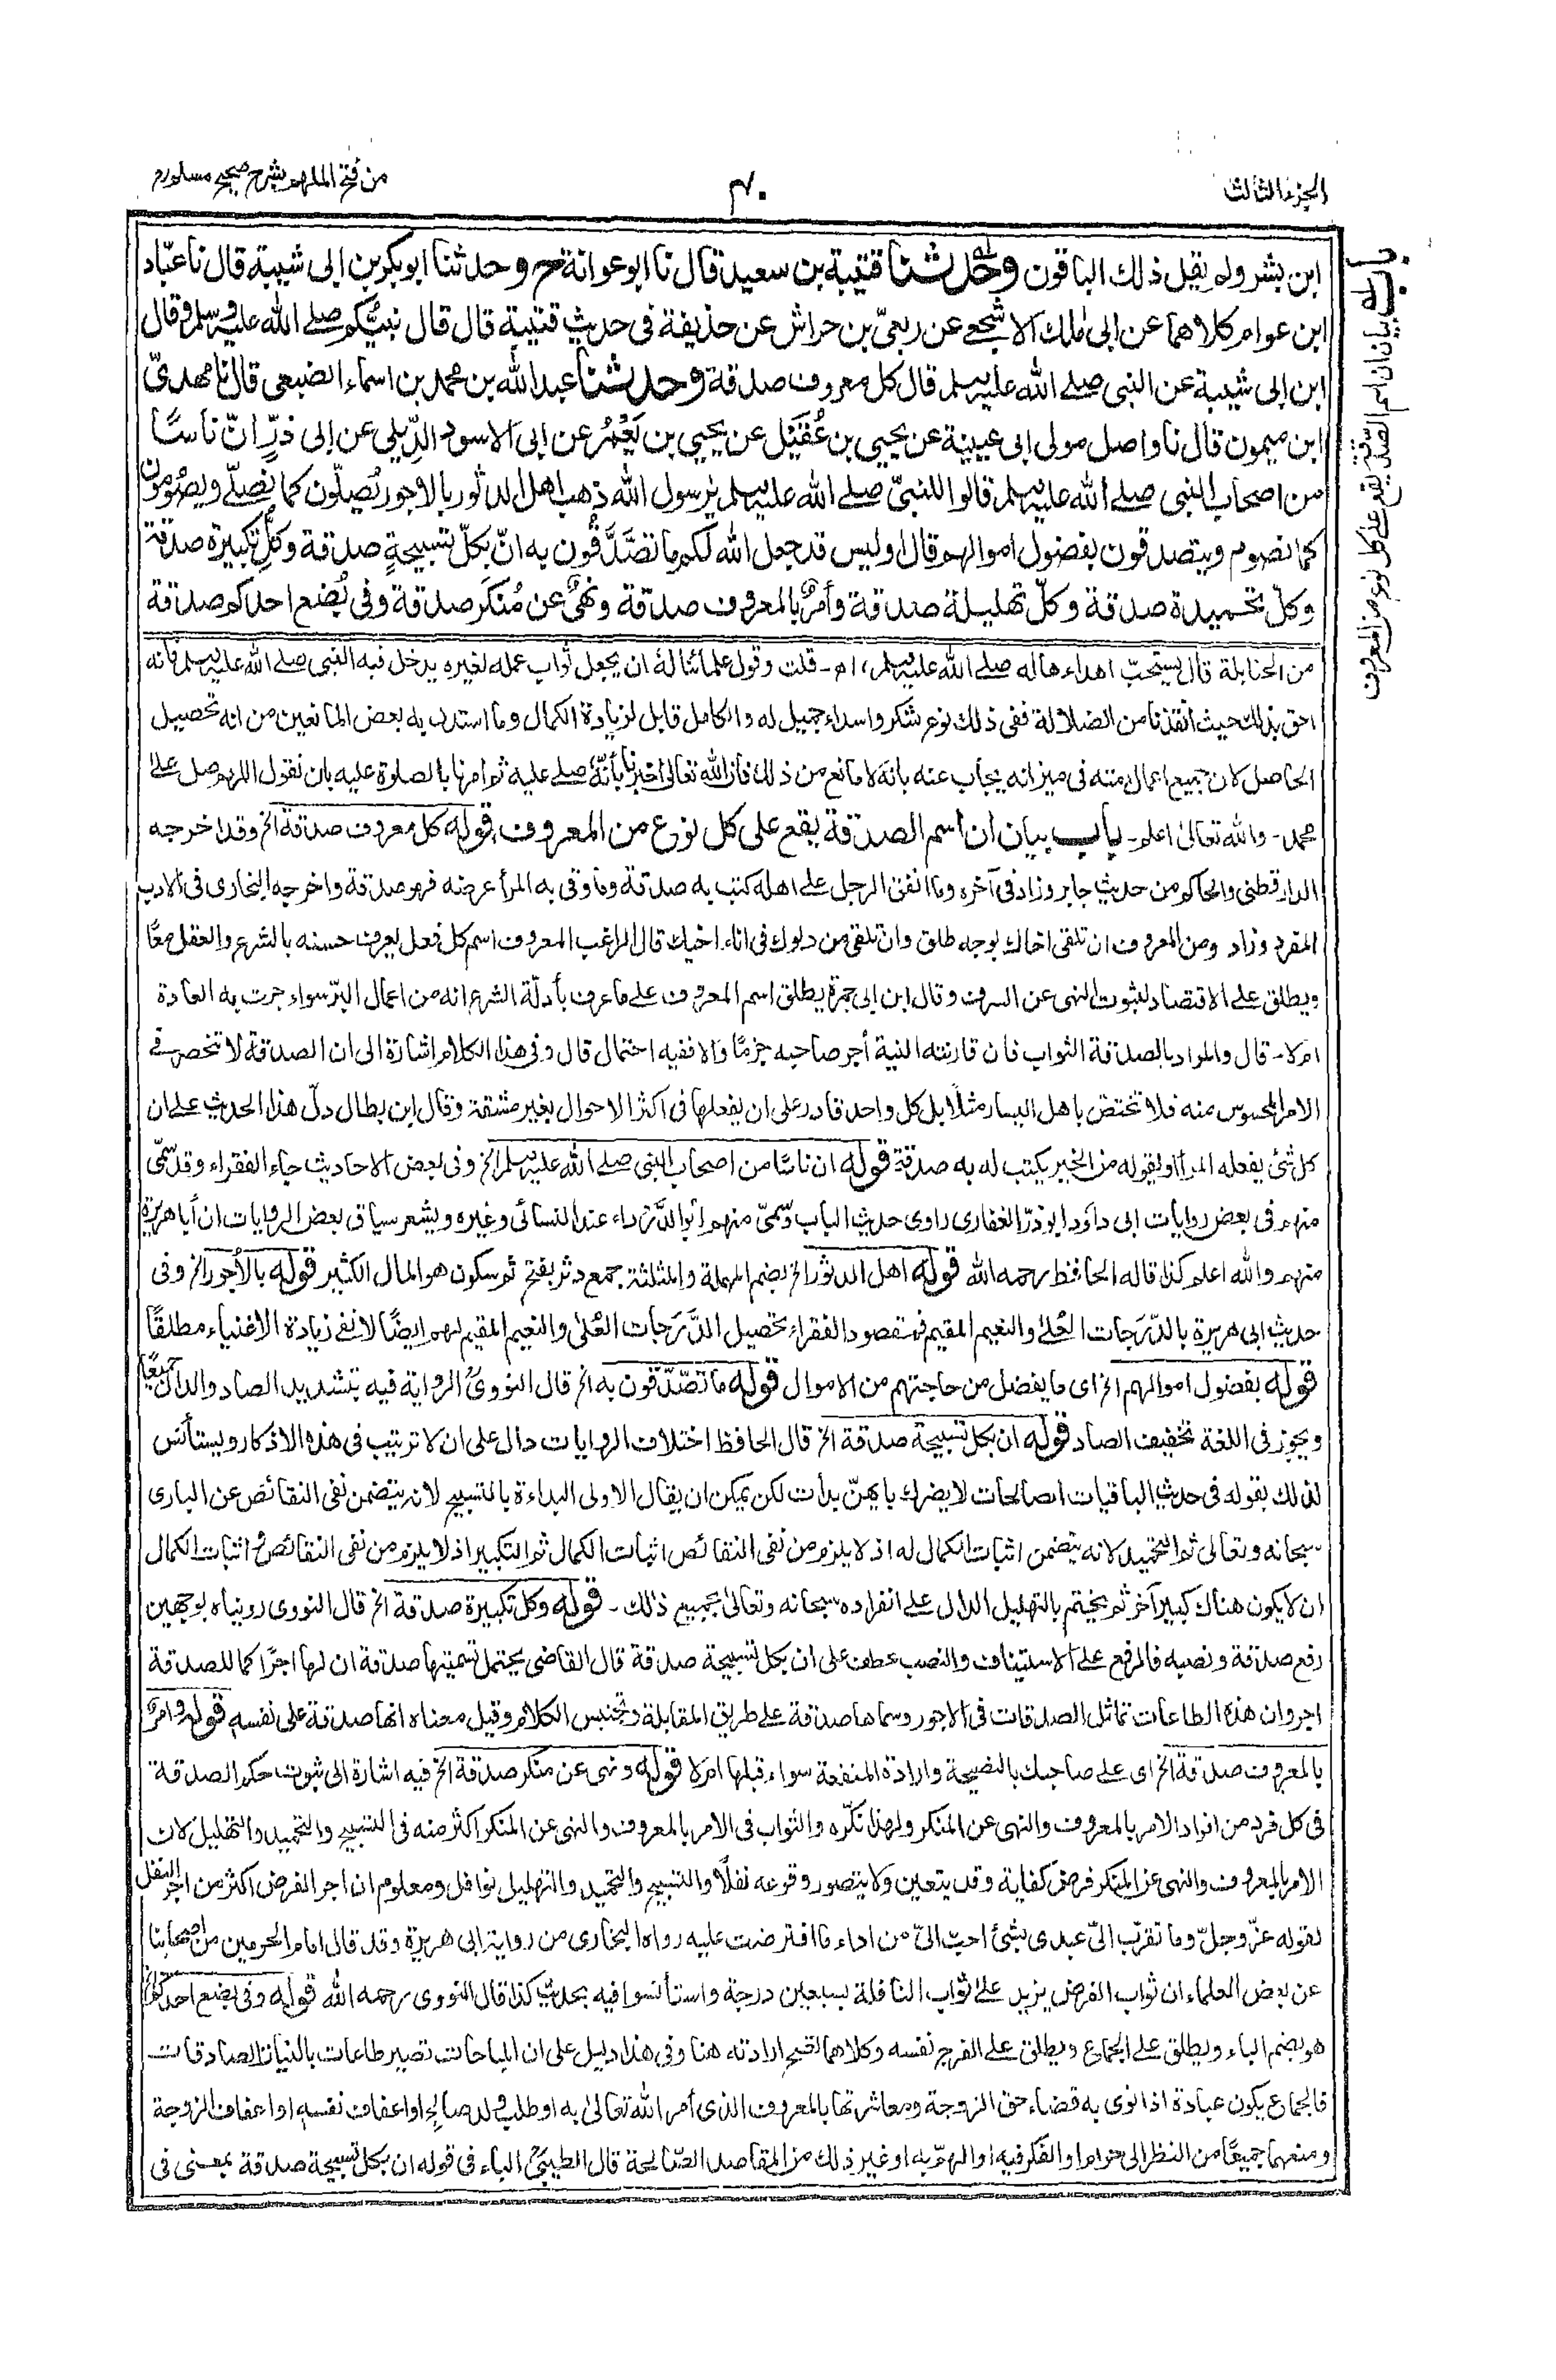 الجزء الثالث
۴۰
من فتح الملهم بشرح صحيح مسلم
باب بيان ان اسم الصدقة يقع على كل نوع من المعروف
ابن بشر ولم يقل ذلك الباقون وحدثنا قتيبة بن سعيد قال نا ابو عوانة ح وحدثنا ابو بكر بن ابى شيبة قال نا عبّاد
ابن عوام كلاهما عن ابى مٰلك الاشجعى عن ربعىّ بن حراش عن حذيفة فى حديث قتيبة قال قال نبيّكم صلى الله عليه وسلم وقال
ابن ابى شيبة عن النبى صلى الله عليه وسلم قال كل معروف صدقة وحدثنا عبد الله بن محمد بن اسماء الضبعى قال نا مهدىّ
ابن ميمون قال نا واصل مولى ابى عيينة عن يحيى بن عُقَيْل عن يحيى بن يَعْمُر عن ابى الاسود الدِّيلى عن ابى ذرٍّ انّ ناسًا
من اصحاب النبى صلى الله عليه وسلم قالوا للنبىّ صلى الله عليه وسلم يٰرسول الله ذهب اهل الدثور بالاجور يُصلّون كما نصلّى ويصومون
كما نصوم ويتصدقون بفضول اموالهم قال اوليس قد جعل الله لكم ما تصَّدَّقُون به انّ بكلّ تسبيحةٍ صدقة وكلِّ تكبيرة صدقة
وكلّ تحميدة صدقة وكلّ تهليلة صدقة وأمرٌ بالمعروف صدقة ونهىٌ عن مُنكَر صدقة وفى بُضع احدكم صدقة
من الحنابلة قال يستحبّ اهداءها له صلى الله عليه وسلم، اه - قلت وقول علمائنا له ان يجعل ثواب عمله لغيره يدخل فيه النبى صلى الله عليه وسلم فانه
احق بذلك حيث انقذنا من الضلالة ففى ذلك نوع شكر واسداء جميل له والكامل قابل لزيادة الكمال وما استدل به بعض المانعين من انه تحصيل
الحاصل لان جميع اعمال امته فى ميزانه يجاب عنه بانه لا مانع من ذلك فان الله تعالى اخبرنا بأنّه صلى عليه ثم امرنا بالصلوة عليه بان نقول اللهم صل على
محمد - والله تعالى اعلم - باب بيان ان اسم الصدقة يقع على كل نوع من المعروف، قوله كل معروف صدقة الخ وقد اخرجه
الدارقطنى والحاكم من حديث جابر وزاد فى آخره وما انفق الرجل على اهله كتب به صدقة وما وقى به المرأ عرضه فهو صدقة واخرجه البخارى فى الادب
المفرد وزاد ومن المعروف ان تلقى اخاك بوجه طلق وان تلقى من دلوك فى اناء اخيك قال الراغب المعروف اسم كل فعل يعرف حسنه بالشرع والعقل معًا
ويطلق على الاقتصاد لثبوت النهى عن السرف وقال ابن ابى جمرة يطلق اسم المعروف على ما عرف بأدلّة الشرع انه من اعمال البرّ سواء جرت به العادة
ام لا - قال والمراد بالصدقة الثواب فان قارنته النية أجر صاحبه جزمًا والا ففيه احتمال قال وفى هذا الكلام اشارة الى ان الصدقة لا تنحصر فى
الامر المحسوس منه فلا تختص باهل اليسار مثلًا بل كل واحد قادر على ان يفعلها فى اكثر الاحوال بغير مشقة وقال ابن بطال دلّ هذا الحديث على ان
كل شئ يفعله المرأ او يقوله من الخير يكتب له به صدقة قوله ان ناسًا من اصحاب النبى صلى الله عليه وسلم الخ وفى بعض الاحاديث جاء الفقراء وقد سمّى
منهم فى بعض روايات ابى داؤد ابو ذرّ الغفارى راوى حديث الباب وسمّى منهم ابو الدَّرداء عند النسائى وغيره ويشعر سياق بعض الروايات ان أبا هريرة
منهم والله اعلم كذا قاله الحافظ رحمه الله قوله اهل الدثور الخ بضم المهملة والمثلثة جمع دثر بفتح ثم سكون هو المال الكثير قوله بالأجور الخ وفى
حديث ابى هريرة بالدّرجات العُلىٰ والنعيم المقيم فمقصود الفقراء تحصيل الدَّرَجات العُلىٰ والنعيم المقيم لهم ايضًا لا نفى زيادة الاغنياء مطلقًا
قوله بفضول اموالهم الخ اى ما يفضل من حاجتهم من الاموال قوله ما تصّدّقون به الخ قال النووىُّ الرواية فيه بتشديد الصاد والدال جميعًا
ويجوز فى اللغة تخفيف الصاد قوله ان بكل تسبيحة صدقة الخ قال الحافظ اختلاف الروايات دال على ان لا ترتيب فى هذه الاذكار ويستأنس
لذلك بقوله فى حديث الباقيات الصالحات لا يضرك بايهنّ بدأت لكن يمكن ان يقال الاولى البداءة بالتسبيح لانه يتضمن نفى النقائص عن البارى
سبحانه وتعالى ثم التحميد لانه يتضمن اثبات الكمال له اذ لا يلزم من نفى النقائص اثبات الكمال ثم التكبير اذ لا يلزم من نفى النقائص و اثبات الكمال
ان لا يكون هناك كبير آخر ثم يختم بالتهليل الدال على انفراده سبحانه وتعالىٰ بجميع ذلك - قوله وكل تكبيرة صدقة الخ قال النووى رويناه بوجهين
رفع صدقة ونصبه فالرفع على الاستيناف والنصب عطف على ان بكل تسبيحة صدقة قال القاضى يحتمل تسميتها صدقة ان لها اجرًا كما للصدقة
اجر وان هذه الطاعات تماثل الصدقات فى الاجور وسماها صدقة على طريق المقابلة وتجنيس الكلام وقيل معناه انها صدقة على نفسه قوله وامرٌ
بالمعروف صدقة الخ اى على صاحبك بالنصيحة وارادة المنفعة سواء قبلها ام لا قوله ونهى عن منكر صدقة الخ فيه اشارة الى ثبوت حكم الصدقة
فى كل فرد من افراد الامر بالمعروف والنهى عن المنكر ولهذا نكّره والثواب فى الامر بالمعروف والنهى عن المنكر اكثر منه فى التسبيح والتحميد والتهليل لان
الامر بالمعروف والنهى عن المنكر فرض كفاية وقد يتعين ولا يتصور وقوعه نفلًا والتسبيح والتحميد والتهليل نوافل ومعلوم ان اجر الفرض اكثر من اجر النفل
لقوله عزّ وجلّ وما تقرّب الىّ عبدى بشئ احبّ الىّ من اداء ما افترضت عليه رواه البخارى من رواية ابى هريرة وقد قال امام الحرمين من اصحابنا
عن بعض العلماء ان ثواب الفرض يزيد علىٰ ثواب النافلة بسبعين درجة واستأنسوا فيه بحديث كذا قال النووى رحمه الله قوله وفى بضع احدكم الخ
هو بضم الباء ويطلق على الجماع ويطلق على الفرج نفسه وكلاهما تصح ارادته هنا وفى هذا دليل على ان المباحات تصير طاعات بالنيات الصادقات
فالجماع يكون عبادة اذا نوى به قضاء حق الزوجة ومعاشرتها بالمعروف الذى أمر الله تعالىٰ به او طلب ولد صالح او اعفاف نفسه او اعفاف الزوجة
ومنعهما جميعًا من النظر الى حرام او الفكر فيه او الهمّ به او غير ذلك من المقاصد الصّالحة قال الطيبىُّ الباء فى قوله ان بكل تسبيحة صدقة بمعنى فى